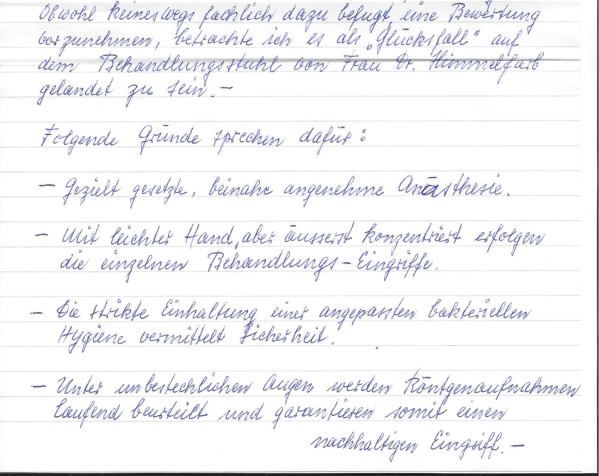 Obwohl keineswegs fachlich dazu befugt eine Bewertung
vorzunehmen, betrachte ich es als „Glücksfall" auf
dem Behandlungsstuhl von Frau Dr. Himmelfarb
gelandet zu sein. –
Folgende Gründe sprechen dafür:
– Gezielt gesetzte, beinahe angenehme Anästhesie.
– Mit leichter Hand, aber äusserst konzentriert erfolgen
die einzelnen Behandlungs-Eingriffe.
– Die strikte Einhaltung einer angepassten bakteriellen
Hygiene vermittelt Sicherheit.
– Unter unbestechlichen Augen werden Röntgenaufnahmen
laufend beurteilt und garantieren somit einen
nachhaltigen Eingriff. –